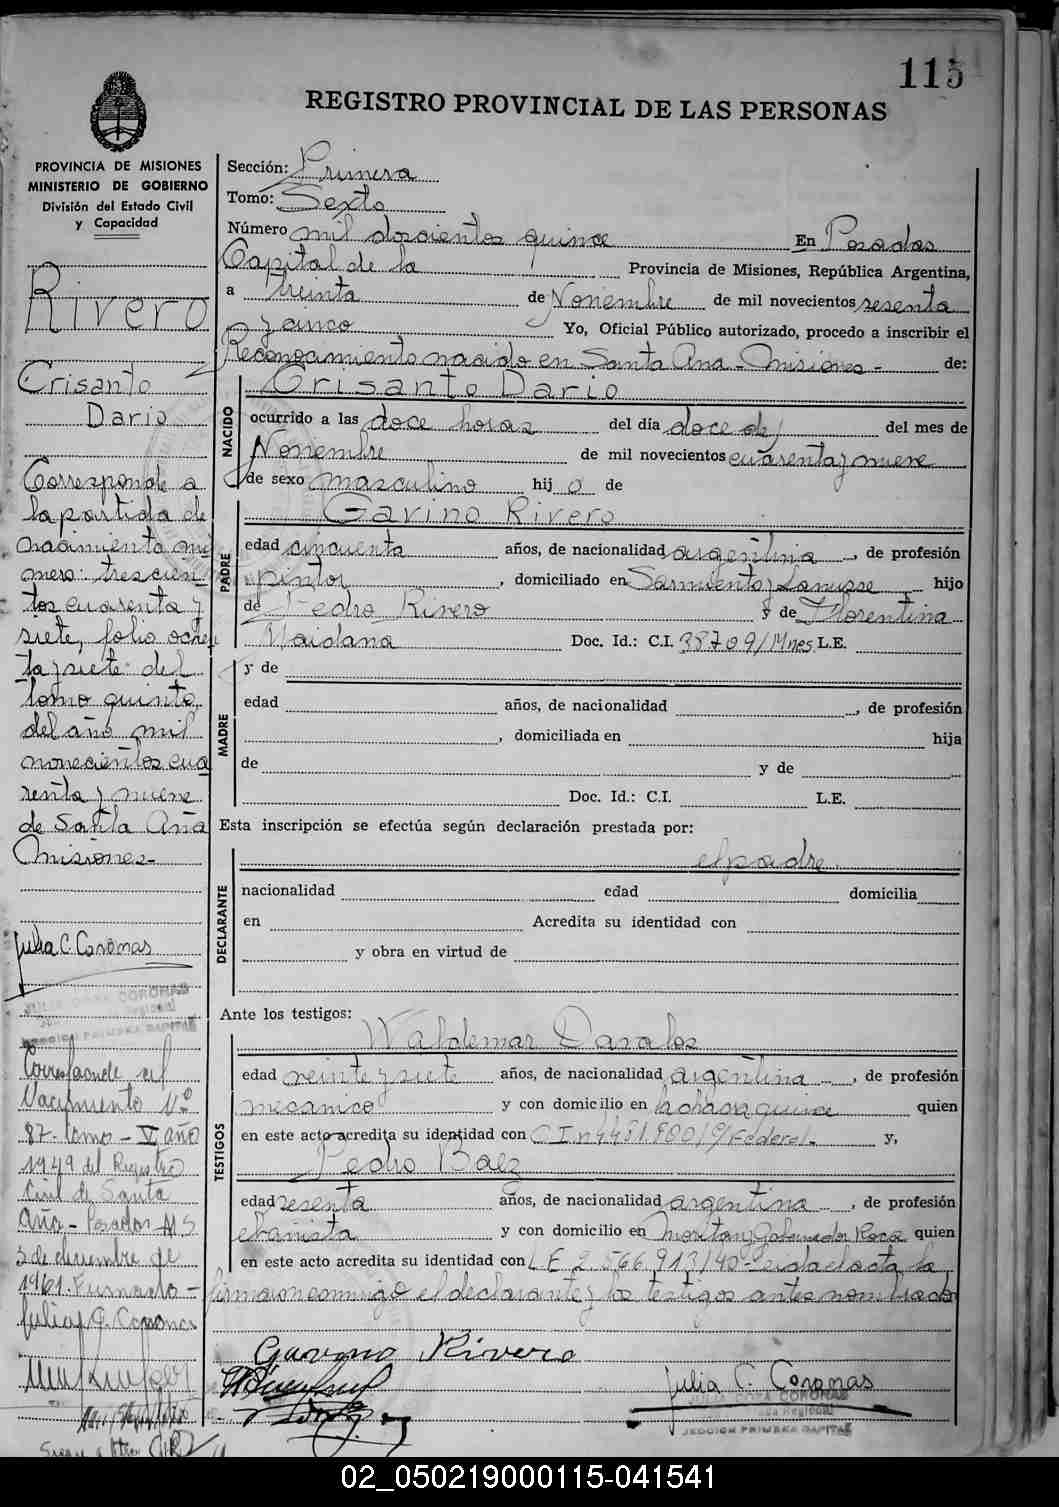 115
REGISTRO PROVINCIAL DE LAS PERSONAS
PROVINCIA DE MISIONES
MINISTERIO DE GOBIERNO
División del Estado Civil
y Capacidad
Rivero
Crisanto
Dario
Corresponde a
la partida de
nacimiento nu
mero: trescien
tos cuarenta y
siete, folio ochen
ta y siete del
tomo quinto
del año mil
novecientos cua
renta y nueve
de Santa Ana
Misiones-
Julia C. Coronas
JULIA COZA CORONAS
SECCION PRIMERA CAPITAL
Corresponde al
Nacimiento Nº
87- tomo - V año
1949 del Registro
Civil de Santa
Ana - Posadas MS
de diciembre de
Firmado -
Julia C. Coronas
Sección: Primera
Tomo: Sexto
Número mil doscientos quince En Posadas
Capital de la Provincia de Misiones, República Argentina,
a treinta de Noviembre de mil novecientos sesenta
y cinco Yo, Oficial Público autorizado, procedo a inscribir el
Reconocimiento nacido en Santa Ana - Misiones - de:
Crisanto Dario
NACIDO
ocurrido a las doce horas del día doce de del mes de
Noviembre de mil novecientos cuarenta y nueve
de sexo masculino hijo de
Gavino Rivero
PADRE
edad cincuenta años, de nacionalidad argentina, de profesión
pintor, domiciliado en Sarmiento y Lanusse hijo
de Pedro Rivero y de Florentina
Maidana Doc. Id.: C.I. 38709/Mnes L.E.
y de
MADRE
edad años, de nacionalidad , de profesión
, domiciliada en hija
de y de
Doc. Id.: C.I. L.E.
Esta inscripción se efectúa según declaración prestada por:
el padre
DECLARANTE
nacionalidad edad domicilia
en Acredita su identidad con
y obra en virtud de
Ante los testigos:
Waldemar Davalos
TESTIGOS
edad veinte y siete años, de nacionalidad argentina, de profesión
mecanico y con domicilio en la chacra quince quien
en este acto acredita su identidad con C I n 4481800/9/Federal- y,
Pedro Baez
edad sesenta años, de nacionalidad argentina, de profesión
ebanista y con domicilio en y Gobernador Roca quien
en este acto acredita su identidad con L E 2.566.913/40- Leida el acta la
firmaron conmigo el declarante y los testigos antes nombrados
Gavino Rivero
Julia C. Coronas
JULIA COZA CORONAS
SECCION PRIMERA CAPITAL
02_050219000115-041541